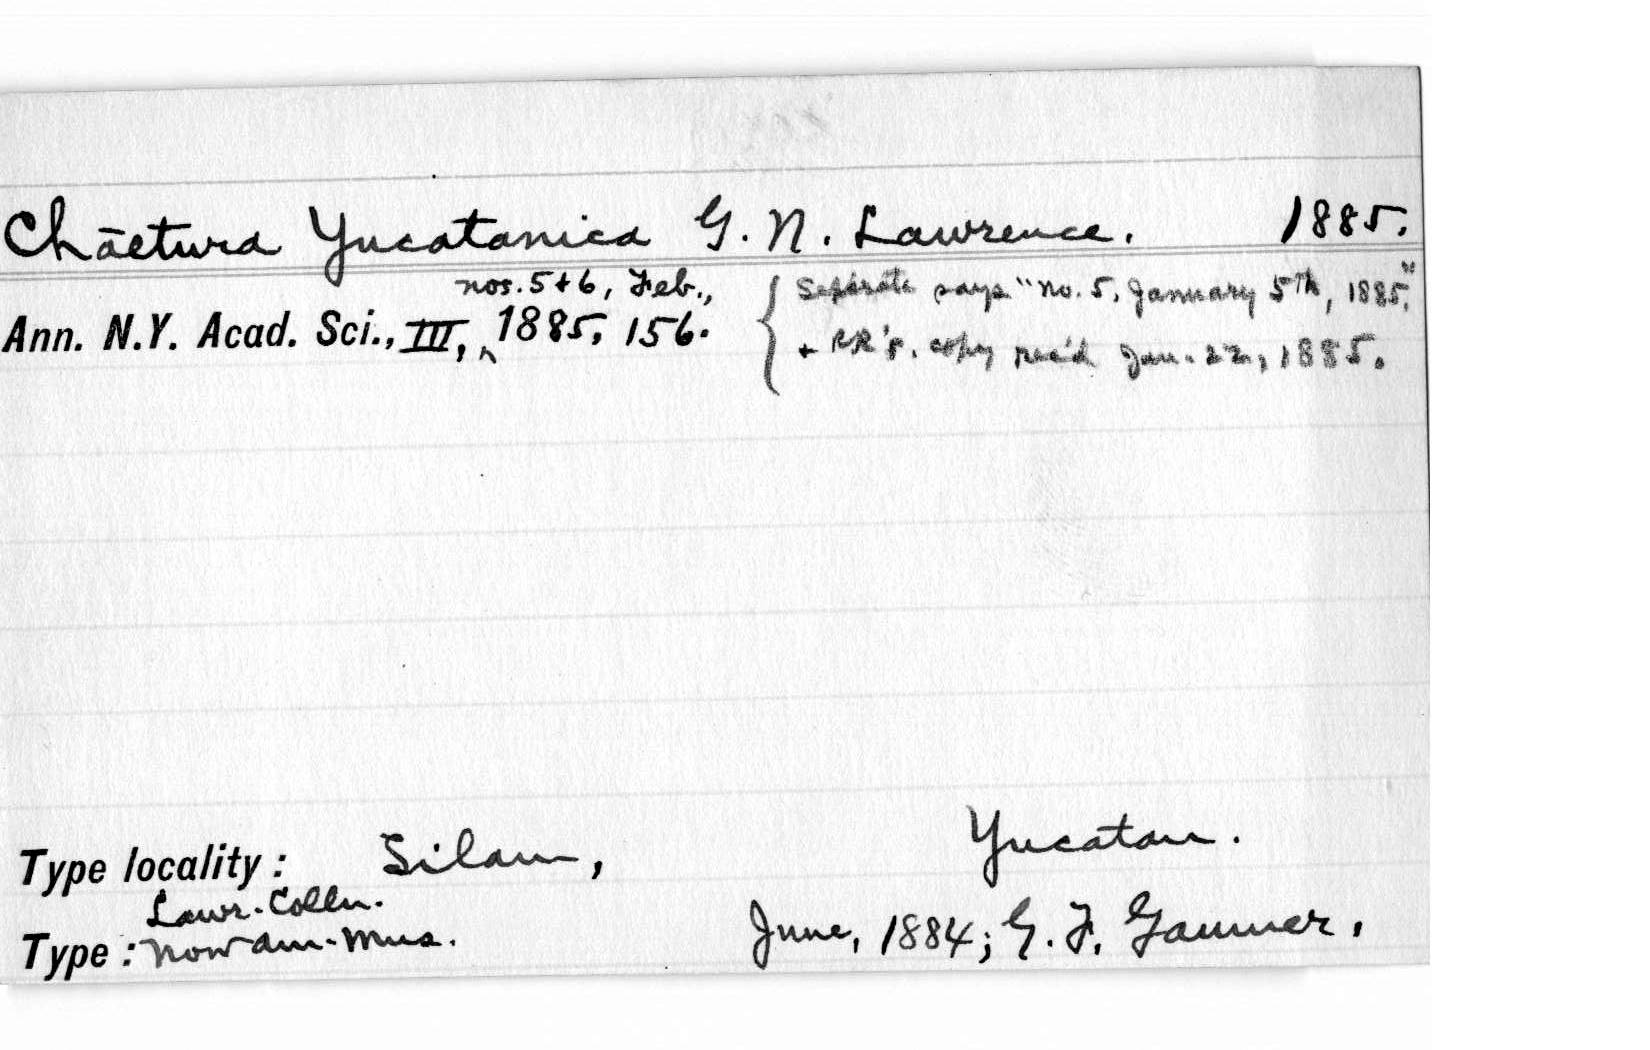 Chaetura Yucatanica G. N. Lawrence. 1885.
nos. 5 + 6, Feb.,
Ann. N.Y. Acad. Sci., III, ^ 1885, 156.
{ Separate says "no. 5, January 5th, 1885,"
+ RR's. copy rec'd Jan. 22, 1885.
Type locality: Silam, Yucatan.
Lawr. Colln.
Type: now Am. Mus. June, 1884; G. F. Gaumer.